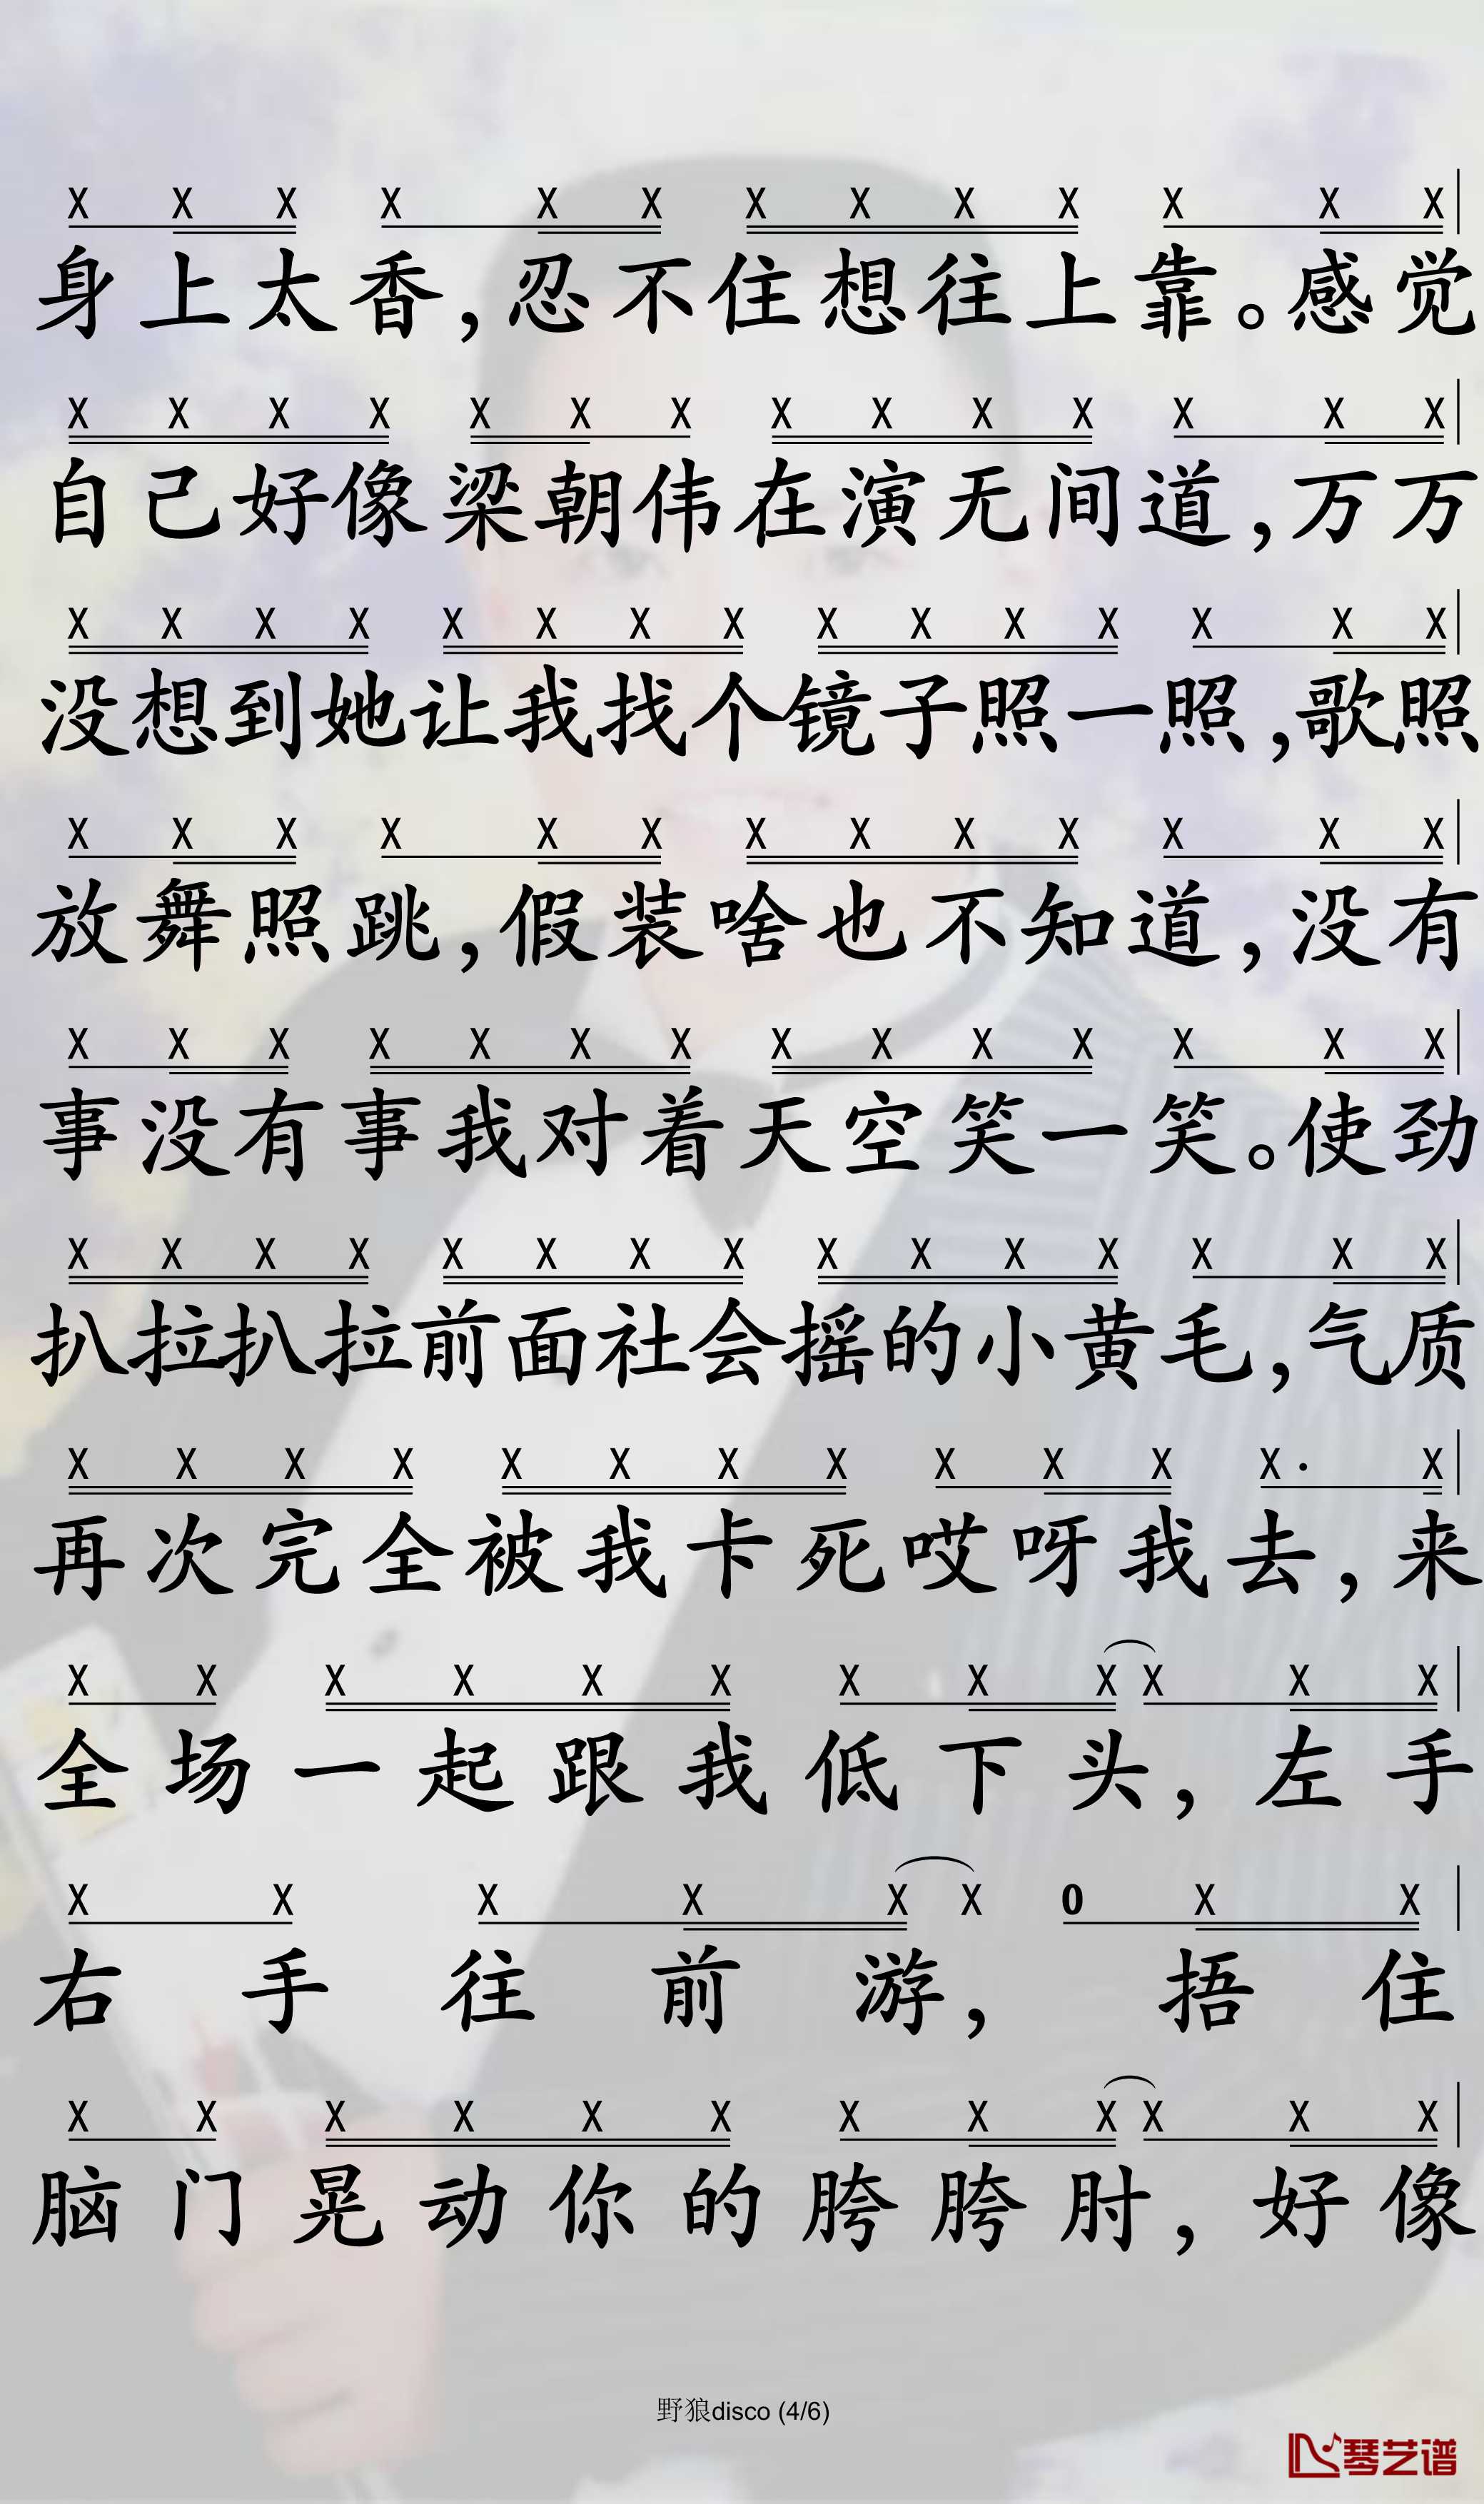 X X X X X X X X X X X X X
身上太香，忍不住想往上靠。感觉
X X X X X X X X X X X X X X
自己好像梁朝伟在演无间道，万万
X X X X X X X X X X X X X X X
没想到她让我找个镜子照一照，歌照
X X X X X X X X X X X X X
放舞照跳，假装啥也不知道，没有
X X X X X X X X X X X X X X
事没有事我对着天空笑一笑。使劲
X X X X X X X X X X X X X X X
扒拉扒拉前面社会摇的小黄毛，气质
X X X X X X X X X X X X· X
再次完全被我卡死哎呀我去，来
X X X X X X X X X X X X
全场一起跟我低下头，左手
X X X X X X 0 X X
右手往前游，捂住
X X X X X X X X X X X X
脑门晃动你的胯胯肘，好像
野狼disco (4/6)
琴艺谱